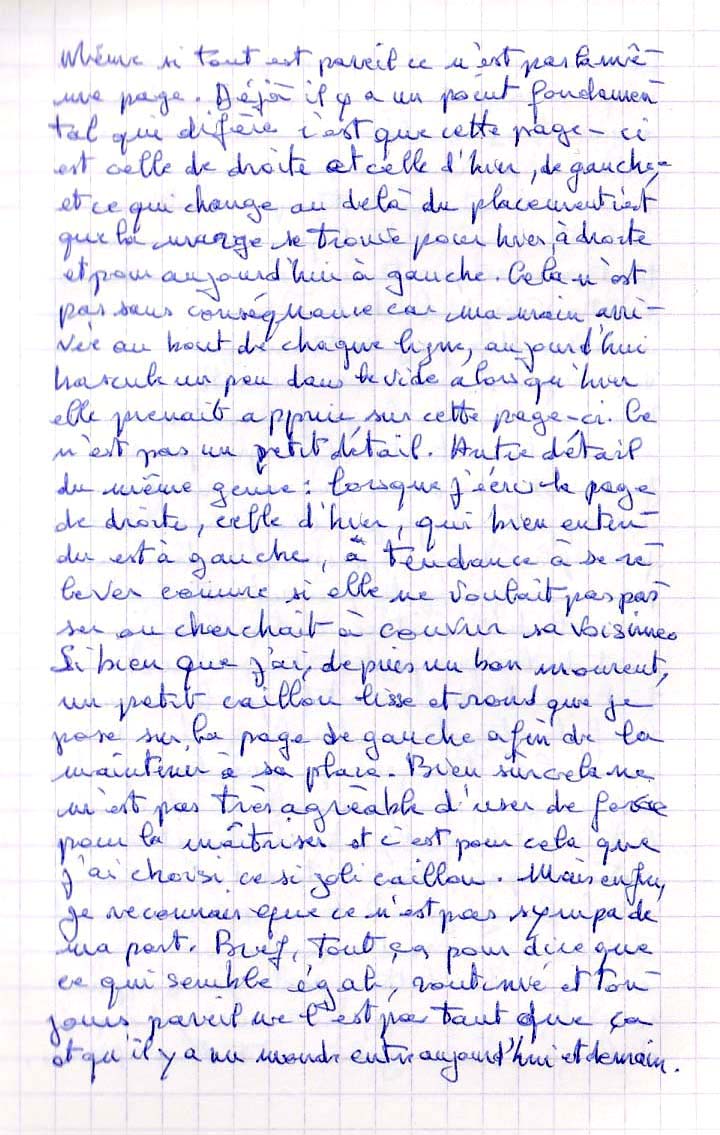 Même si tout est pareil ce n'est pas la mê-
me page. Déjà il y a un point fondamen
tal qui difère c'est que cette page-ci
est celle de droite et celle d'hier, de gauche,
et ce qui change au delà du placement c'est
que la marge se trouve pour hier à droite
et pour aujourd'hui à gauche. Cela n'est
pas sans conséquance car ma main arri-
vée au bout de chaque ligne, aujourd'hui
bascule un peu dans le vide alors qu'hier
elle prenait appuie sur cette page-ci. Ce
n'est pas un petit détail. Autre détail
du même genre : lorsque j'écris la page
de droite, celle d'hier, qui bien enten-
du est à gauche, à tendance à se re-
lever comme si elle ne voulait pas pas
ser ou cherchait à couvrir sa voisine.
Si bien que j'ai, depuis un bon moment,
un petit caillou lisse et rond que je
pose sur la page de gauche afin de la
maintenir à sa place. Bien sûr cela ne
m'est pas très agréable d'user de force
pour la maîtriser et c'est pour cela que
j'ai choisi ce si joli caillou. Mais enfin,
je reconnais que ce n'est pas sympa de
ma part. Bref, tout ça pour dire que
ce qui semble égal, routinié et tou-
jours pareil ne l'est pas tant que ça
et qu'il y a un monde entre aujourd'hui et demain.